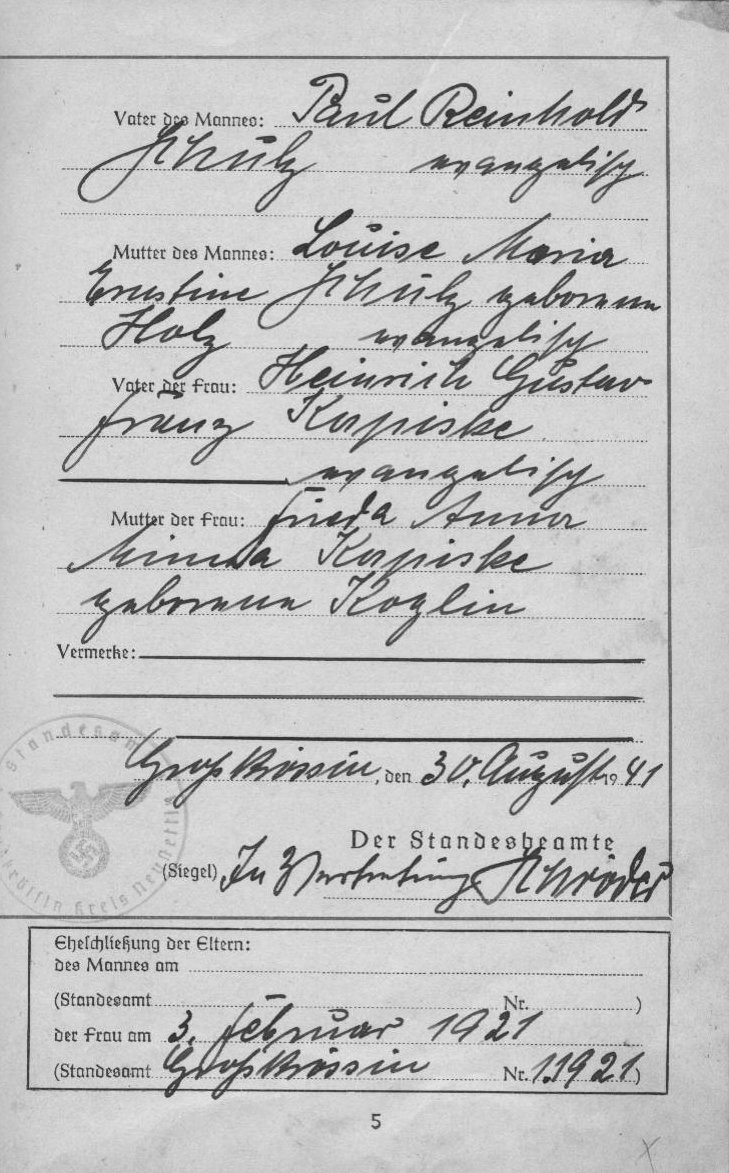 Vater des Mannes: Paul Reinhold
Schulz evangelisch
Mutter des Mannes: Louise Maria
Ernestine Schulz geborene
Holz evangelisch
Vater der Frau: Heinrich Gustav
Franz Karpiske
evangelisch
Mutter der Frau: Frieda Anna
Minna Karpiske
geborene Koglin
Vermerke:
Großkrössin, den 30. August 1941
Standesamt
Großkrössin Kreis Neustettin
Der Standesbeamte
(Siegel) In Vertretung Schröder
Eheschließung der Eltern:
des Mannes am
(Standesamt Nr. )
der Frau am 3. Februar 1921
(Standesamt Großkrössin Nr. 1.1921)
5